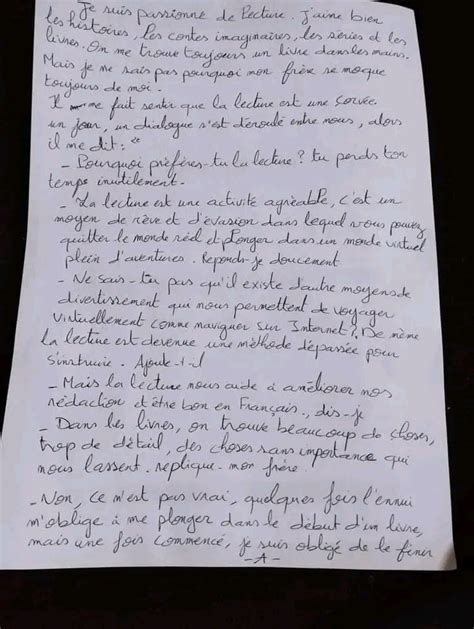 Je suis passionné de lecture. J'aime bien
les histoires, les contes imaginaires, les séries et les
livres. On me trouve toujours un livre dans les mains.
Mais je ne sais pas pourquoi mon frère se moque
toujours de moi.
Il me fait sentir que la lecture est une corvée.
un jour, un dialogue s'est déroulé entre nous, alors
il me dit : "
_ Pourquoi préfères-tu la lecture ? tu perds ton
temps inutilement.
_ La lecture est une activité agréable, c'est un
moyen de rêve et d'évasion dans lequel vous pouvez
quitter le monde réel et plonger dans un monde virtuel
plein d'aventures. Reponds-je doucement
_ Ne sais-tu pas qu'il existe d'autre moyens de
divertissement qui nous permettent de voyager
virtuellement comme naviguer sur Internet ?, De même
la lecture est devenue une méthode dépassée pour
s'instruire. Ajoute-t-il
_ Mais la lecture nous aide à améliorer nos
rédaction et être bon en Français., dis-je
_ Dans les livres, on trouve beaucoup de choses,
trop de détail, des choses sans importance qui
nous lassent. replique-mon frère.
_ Non, ce n'est pas vrai, quelques fois l'ennui
m'oblige à me plonger dans le début d'un livre,
mais une fois commencé, je suis obligé de le finir
-1-